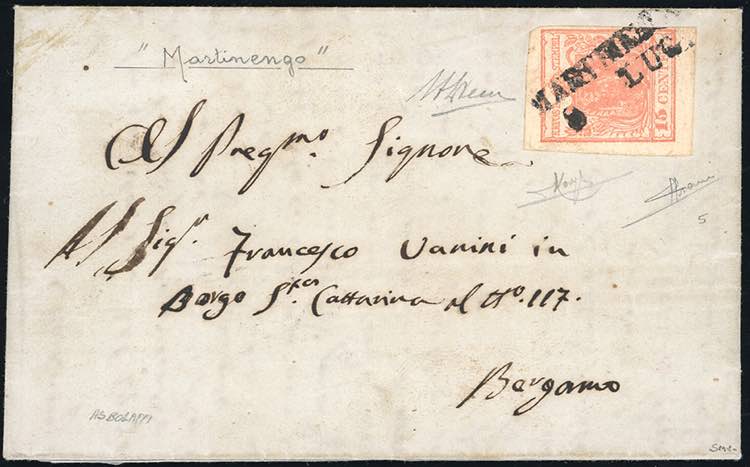 "Martinengo"
MARTINENGO
8 LUG.
15 CENT
Al Pregmo. Signore
Al Sigr. Francesco Vanini in
Borgo Sta Cattarina al No. 117.
Bergamo
ASBOLAFFI
5